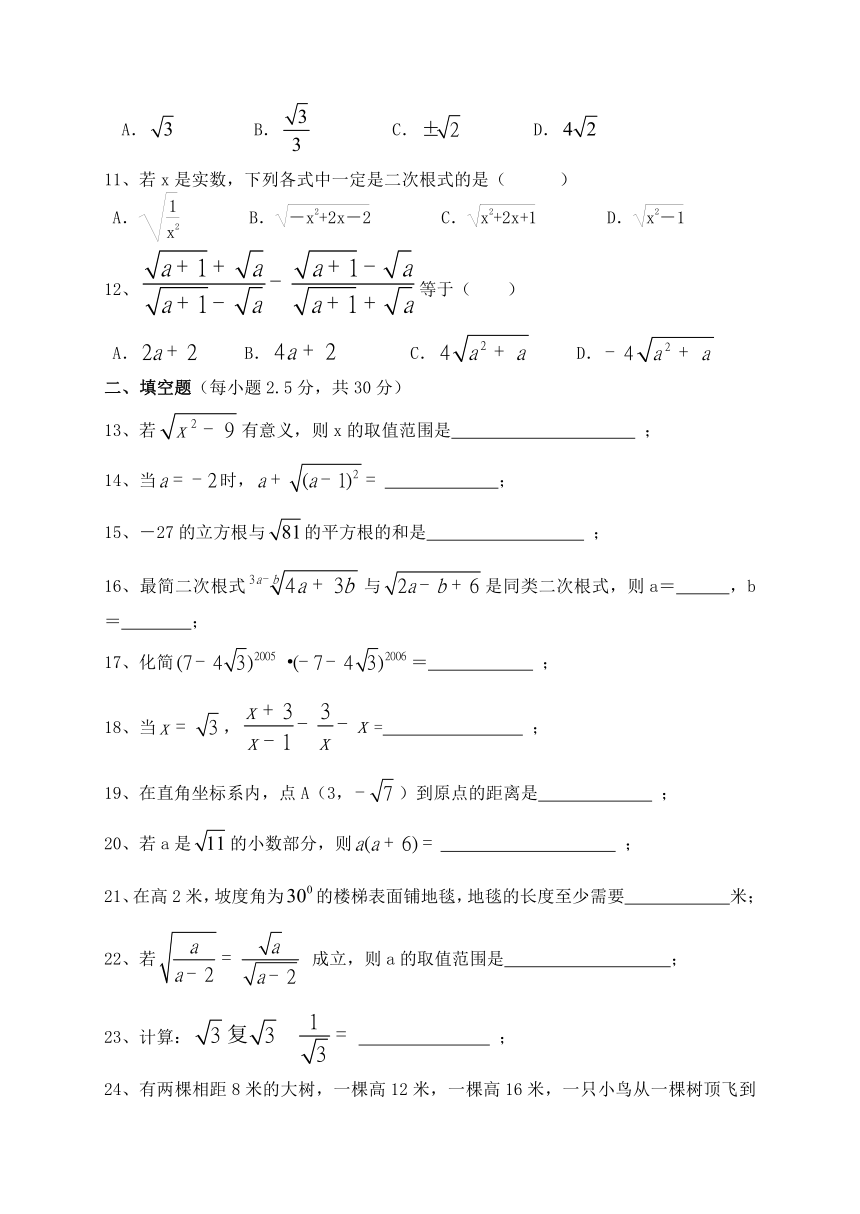 A. √3 B. √3/3 C. ±√2 D. 4√2
11、若x是实数，下列各式中一定是二次根式的是（ ）
A. √(1/x²) B. √(－x²+2x－2) C. √(x²+2x+1) D. √(x²－1)
12、(√(a+1)+√a)/(√(a+1)-√a) - (√(a+1)-√a)/(√(a+1)+√a) 等于（ ）
A. 2a+2 B. 4a+2 C. 4√(a²+a) D. -4√(a²+a)
二、填空题（每小题2.5分，共30分）
13、若√(x²-9)有意义，则x的取值范围是 ；
14、当a=-2时，a+√((a-1)²)= ；
15、－27的立方根与√81的平方根的和是 ；
16、最简二次根式 ^(3a-b)√(4a+3b) 与√(2a-b+6)是同类二次根式，则a＝ ，b
＝ ；
17、化简(7-4√3)²⁰⁰⁵•(-7-4√3)²⁰⁰⁶＝ ；
18、当x=√3，(x+3)/(x-1)-3/x-x= ；
19、在直角坐标系内，点A（3，-√7）到原点的距离是 ；
20、若a是√11的小数部分，则a(a+6)= ；
21、在高2米，坡度角为30⁰的楼梯表面铺地毯，地毯的长度至少需要 米；
22、若√(a/(a-2))=√a/√(a-2) 成立，则a的取值范围是 ；
23、计算：√3复√3 1/√3= ；
24、有两棵相距8米的大树，一棵高12米，一棵高16米，一只小鸟从一棵树顶飞到